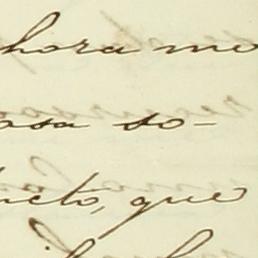 hora me
osa so-
ucto, que